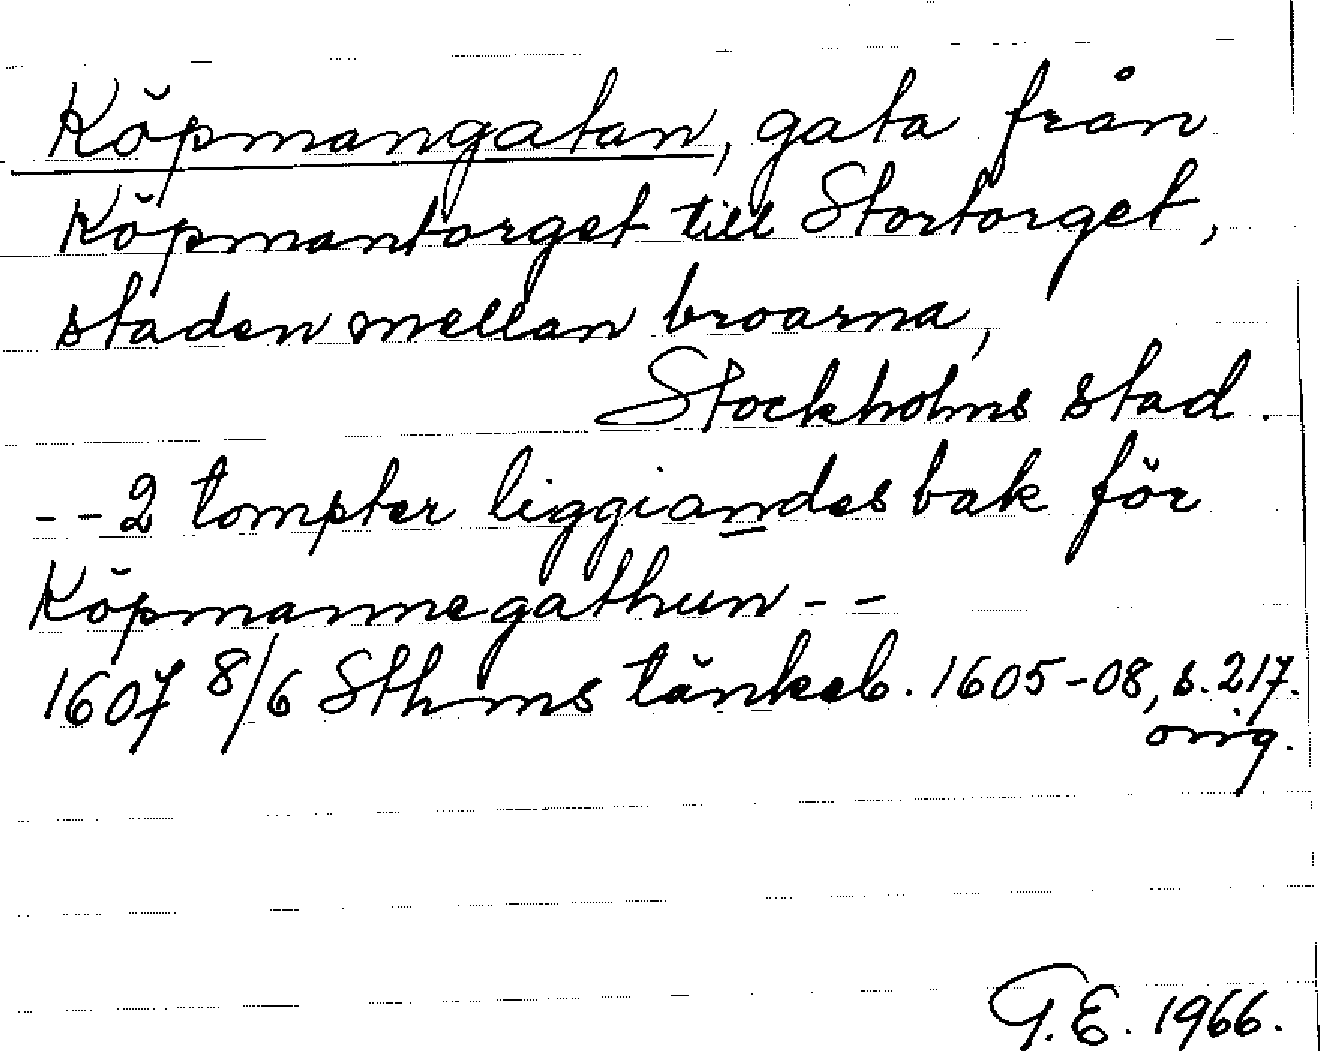 Köpmangatan, gata från
Köpmantorget till Stortorget,
staden mellan broarna,
Stockholms stad.
- - 2 tompter liggiandes bak för
Köpmannegathun - -
1607 8/6 Sthms tänkeb. 1605-08, s. 217.
orig.
G.E. 1966.